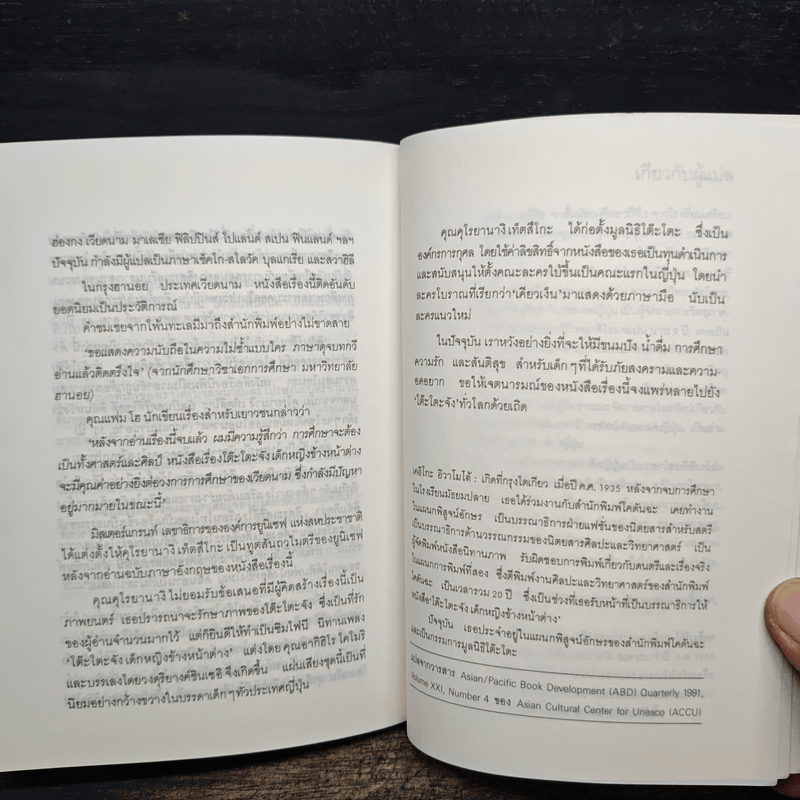 ฮ่องกง เวียดนาม มาเลเซีย ฟิลิปปินส์ โปแลนด์ สเปน ฟินแลนด์ ฯลฯ
ปัจจุบัน กำลังมีผู้แปลเป็นภาษาเช็คโก-สโลวัค บุลแกเรีย และสวาฮิลี
ในกรุงฮานอย ประเทศเวียดนาม หนังสือเรื่องนี้ติดอันดับ
ยอดนิยมเป็นประวัติการณ์
คำชมเชยจากโพ้นทะเลมีมาถึงสำนักพิมพ์อย่างไม่ขาดสาย
'ขอแสดงความนับถือในความไม่ซ้ำแบบใคร ภาษาดุจบทกวี
อ่านแล้วติดตรึงใจ' (จากนักศึกษาวิชาเอกการศึกษา มหาวิทยาลัย
ฮานอย)
คุณแฟม โฮ นักเขียนเรื่องสำหรับเยาวชนกล่าวว่า
'หลังจากอ่านเรื่องนี้จบแล้ว ผมมีความรู้สึกว่า การศึกษาจะต้อง
เป็นทั้งศาสตร์และศิลป์ หนังสือเรื่องโต๊ะโตะจังเด็กหญิงข้างหน้าต่าง
จะมีคุณค่าอย่างยิ่งต่อวงการการศึกษาของเวียดนาม ซึ่งกำลังมีปัญหา
อยู่มากมายในขณะนี้'
มิสเตอร์แกรนท์ เลขาธิการขององค์การยูนิเซฟ แห่งสหประชาชาติ
ได้แต่งตั้งให้คุโรยานางิ เท็ตสึโกะ เป็นทูตสันถวไมตรีของยูนิเซฟ
หลังจากอ่านฉบับภาษาอังกฤษของหนังสือเรื่องนี้
คุณคุโรยานางิ ไม่ยอมรับข้อเสนอที่มีผู้คิดสร้างเรื่องนี้เป็น
ภาพยนตร์ เธอปรารถนาจะรักษาภาพของโต๊ะโตะจัง ซึ่งเป็นที่รัก
ของผู้อ่านจำนวนมากไว้ แต่ก็ยินดีให้ทำเป็นซิมโฟนี นิทานเพลง
'โต๊ะโตะจัง เด็กหญิงข้างหน้าต่าง' แต่งโดย คุณอากิฮิโร โคโมริ
และบรรเลงโดยวงดุริยางค์ชินเซอิ จึงเกิดขึ้น แผ่นเสียงชุดนี้เป็นที่
นิยมอย่างกว้างขวางในบรรดาเด็ก ๆ ทั่วประเทศญี่ปุ่น
คุณคุโรยานางิ เท็ตสึโกะ ได้ก่อตั้งมูลนิธิโต๊ะโตะ ซึ่งเป็น
องค์กรการกุศล โดยใช้ค่าลิขสิทธิ์จากหนังสือของเธอเป็นทุนดำเนินการ
และสนับสนุนให้ตั้งคณะละครใบ้ขึ้นเป็นคณะแรกในญี่ปุ่น โดยนำ
ละครโบราณที่เรียกว่า'เคียวเง็น'มาแสดงด้วยภาษามือ นับเป็น
ละครแนวใหม่
ในปัจจุบัน เราหวังอย่างยิ่งที่จะให้มีขนมปัง น้ำดื่ม การศึกษา
ความรัก และสันติสุข สำหรับเด็ก ๆ ที่ได้รับภัยสงครามและความ
อดอยาก ขอให้เจตนารมณ์ของหนังสือเรื่องนี้จงแพร่หลายไปยัง
'โต๊ะโตะจัง'ทั่วโลกด้วยเถิด
เคอิโกะ อิวาโมโต้ : เกิดที่กรุงโตเกียว เมื่อปี ค.ศ. 1935 หลังจากจบการศึกษา
ในโรงเรียนมัธยมปลาย เธอได้ร่วมงานกับสำนักพิมพ์โคดันฉะ เคยทำงาน
ในแผนกพิสูจน์อักษร เป็นบรรณาธิการฝ่ายแฟชั่นของนิตยสารสำหรับสตรี
เป็นบรรณาธิการด้านวรรณกรรมของนิตยสารศิลปะและวิทยาศาสตร์ เป็น
ผู้จัดพิมพ์หนังสือนิทานภาพ รับผิดชอบการพิมพ์เกี่ยวกับดนตรีและเรื่องจริง
ในแผนกการพิมพ์ที่สอง ซึ่งตีพิมพ์งานศิลปะและวิทยาศาสตร์ของสำนักพิมพ์
โคดันฉะ เป็นเวลารวม 20 ปี ซึ่งเป็นช่วงที่เธอรับหน้าที่เป็นบรรณาธิการให้
หนังสือ'โต๊ะโตะจัง เด็กหญิงข้างหน้าต่าง'
ปัจจุบัน เธอประจำอยู่ในแผนกพิสูจน์อักษรของสำนักพิมพ์โคดันฉะ
และเป็นกรรมการมูลนิธิโต๊ะโตะ
แปลจากวารสาร Asian/Pacific Book Development (ABD) Quarterly 1991,
Volume XXI, Number 4 ของ Asian Cultural Center for Unesco (ACCU)